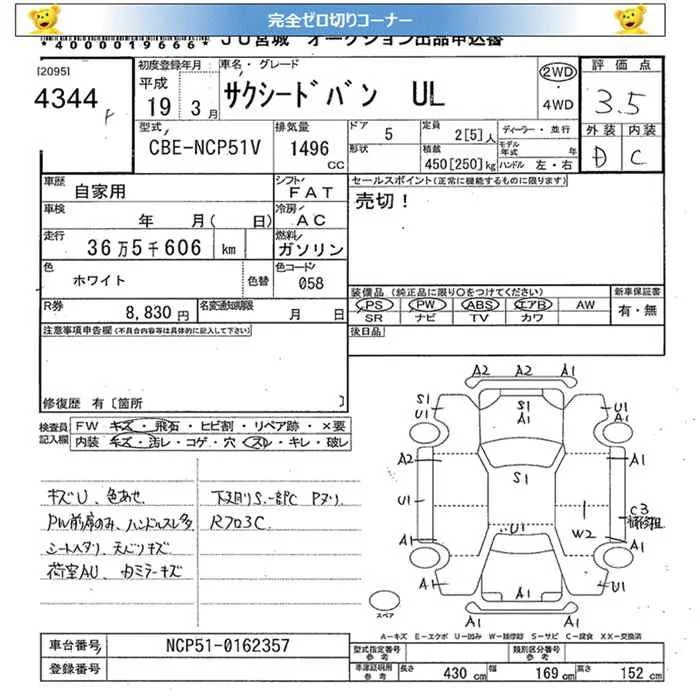 完全ゼロ切りコーナー
*4000019666* JU宮城 オークション出品申込書
120951
4344
初度登録年月
平成
19年 3月
車名・グレード
サクシードバン UL
2WD
・
4WD
評価点
3.5
外装 内装
D C
型式
CBE-NCP51V
排気量
1496
CC
ドア 5
定員 2[5]人
ディーラー・並行
形状
積載 450[250]kg
モデル年式 年
ハンドル 左・右
車歴
自家用
シフト
FAT
セールスポイント(正常に機能するものに限ります)
売切!
車検
年 月( 日)
冷房
AC
走行
36万5千606 km
燃料
ガソリン
色
ホワイト
色替
色コード
058
装備品 (純正品に限り○をつけてください)
新車保証書
PS PW ABS エアB AW
有・無
SR ナビ TV カワ
R券
8,830円
名変通知期限
月 日
後日品
注意事項申告欄(不具合内容等は具体的に記入して下さい)
修復歴 有[箇所 ]
検査員記入欄
FW キズ・飛石・ヒビ割・リペア跡・×要
内装 キズ・汚レ・コゲ・穴・スレ・キレ・破レ
キズU、色あせ
PW前席のみ、ハンドルスレ多
シートヘタリ、天バリキズ
荷室AU、
下廻りS、一部C Pヌリ
Rフロ3C
A2 A2 A1
S1
U1
S1
A1
U1
A1
A2
A1
S1
U1
C3
W2
U1
A1
A1
A1
A1
U1
スペア
A-キズ E-エクボ U-凹み W-補修跡 S-サビ C-腐食 XX-交換済
車台番号
NCP51-0162357
登録番号
型式指定番号
参考
類別区分番号
参考
車庫証明用
参考
長さ 430 cm 幅 169 cm 高さ 152 cm